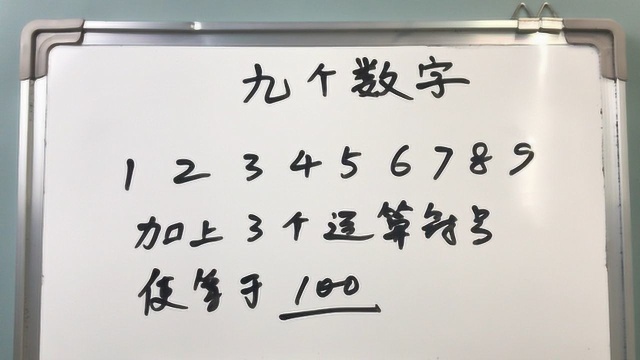 九个数字
1 2 3 4 5 6 7 8 9
加上3个运算符号
使等于 100